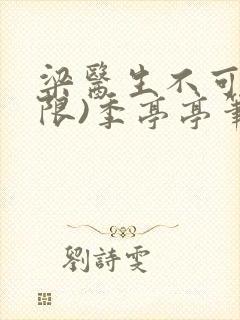 梁醫生不可
限)季亭亭筆
劉詩雯